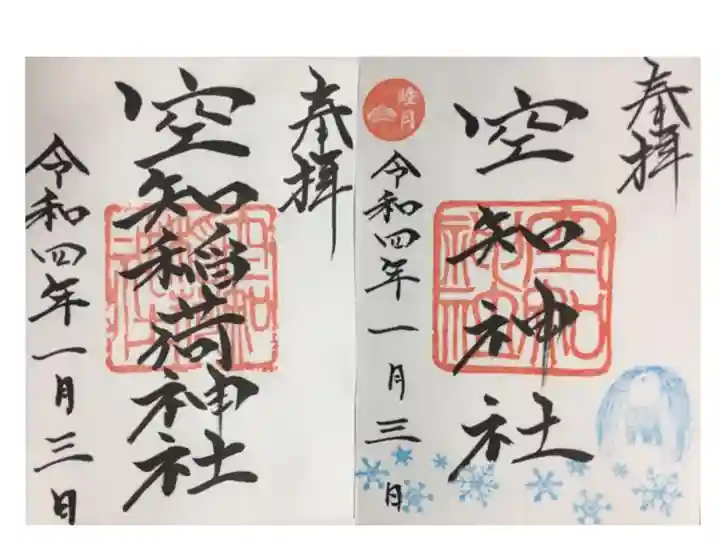 奉拝
空知神社
睦月
令和四年一月三日
奉拝
空知稲荷神社
令和四年一月三日